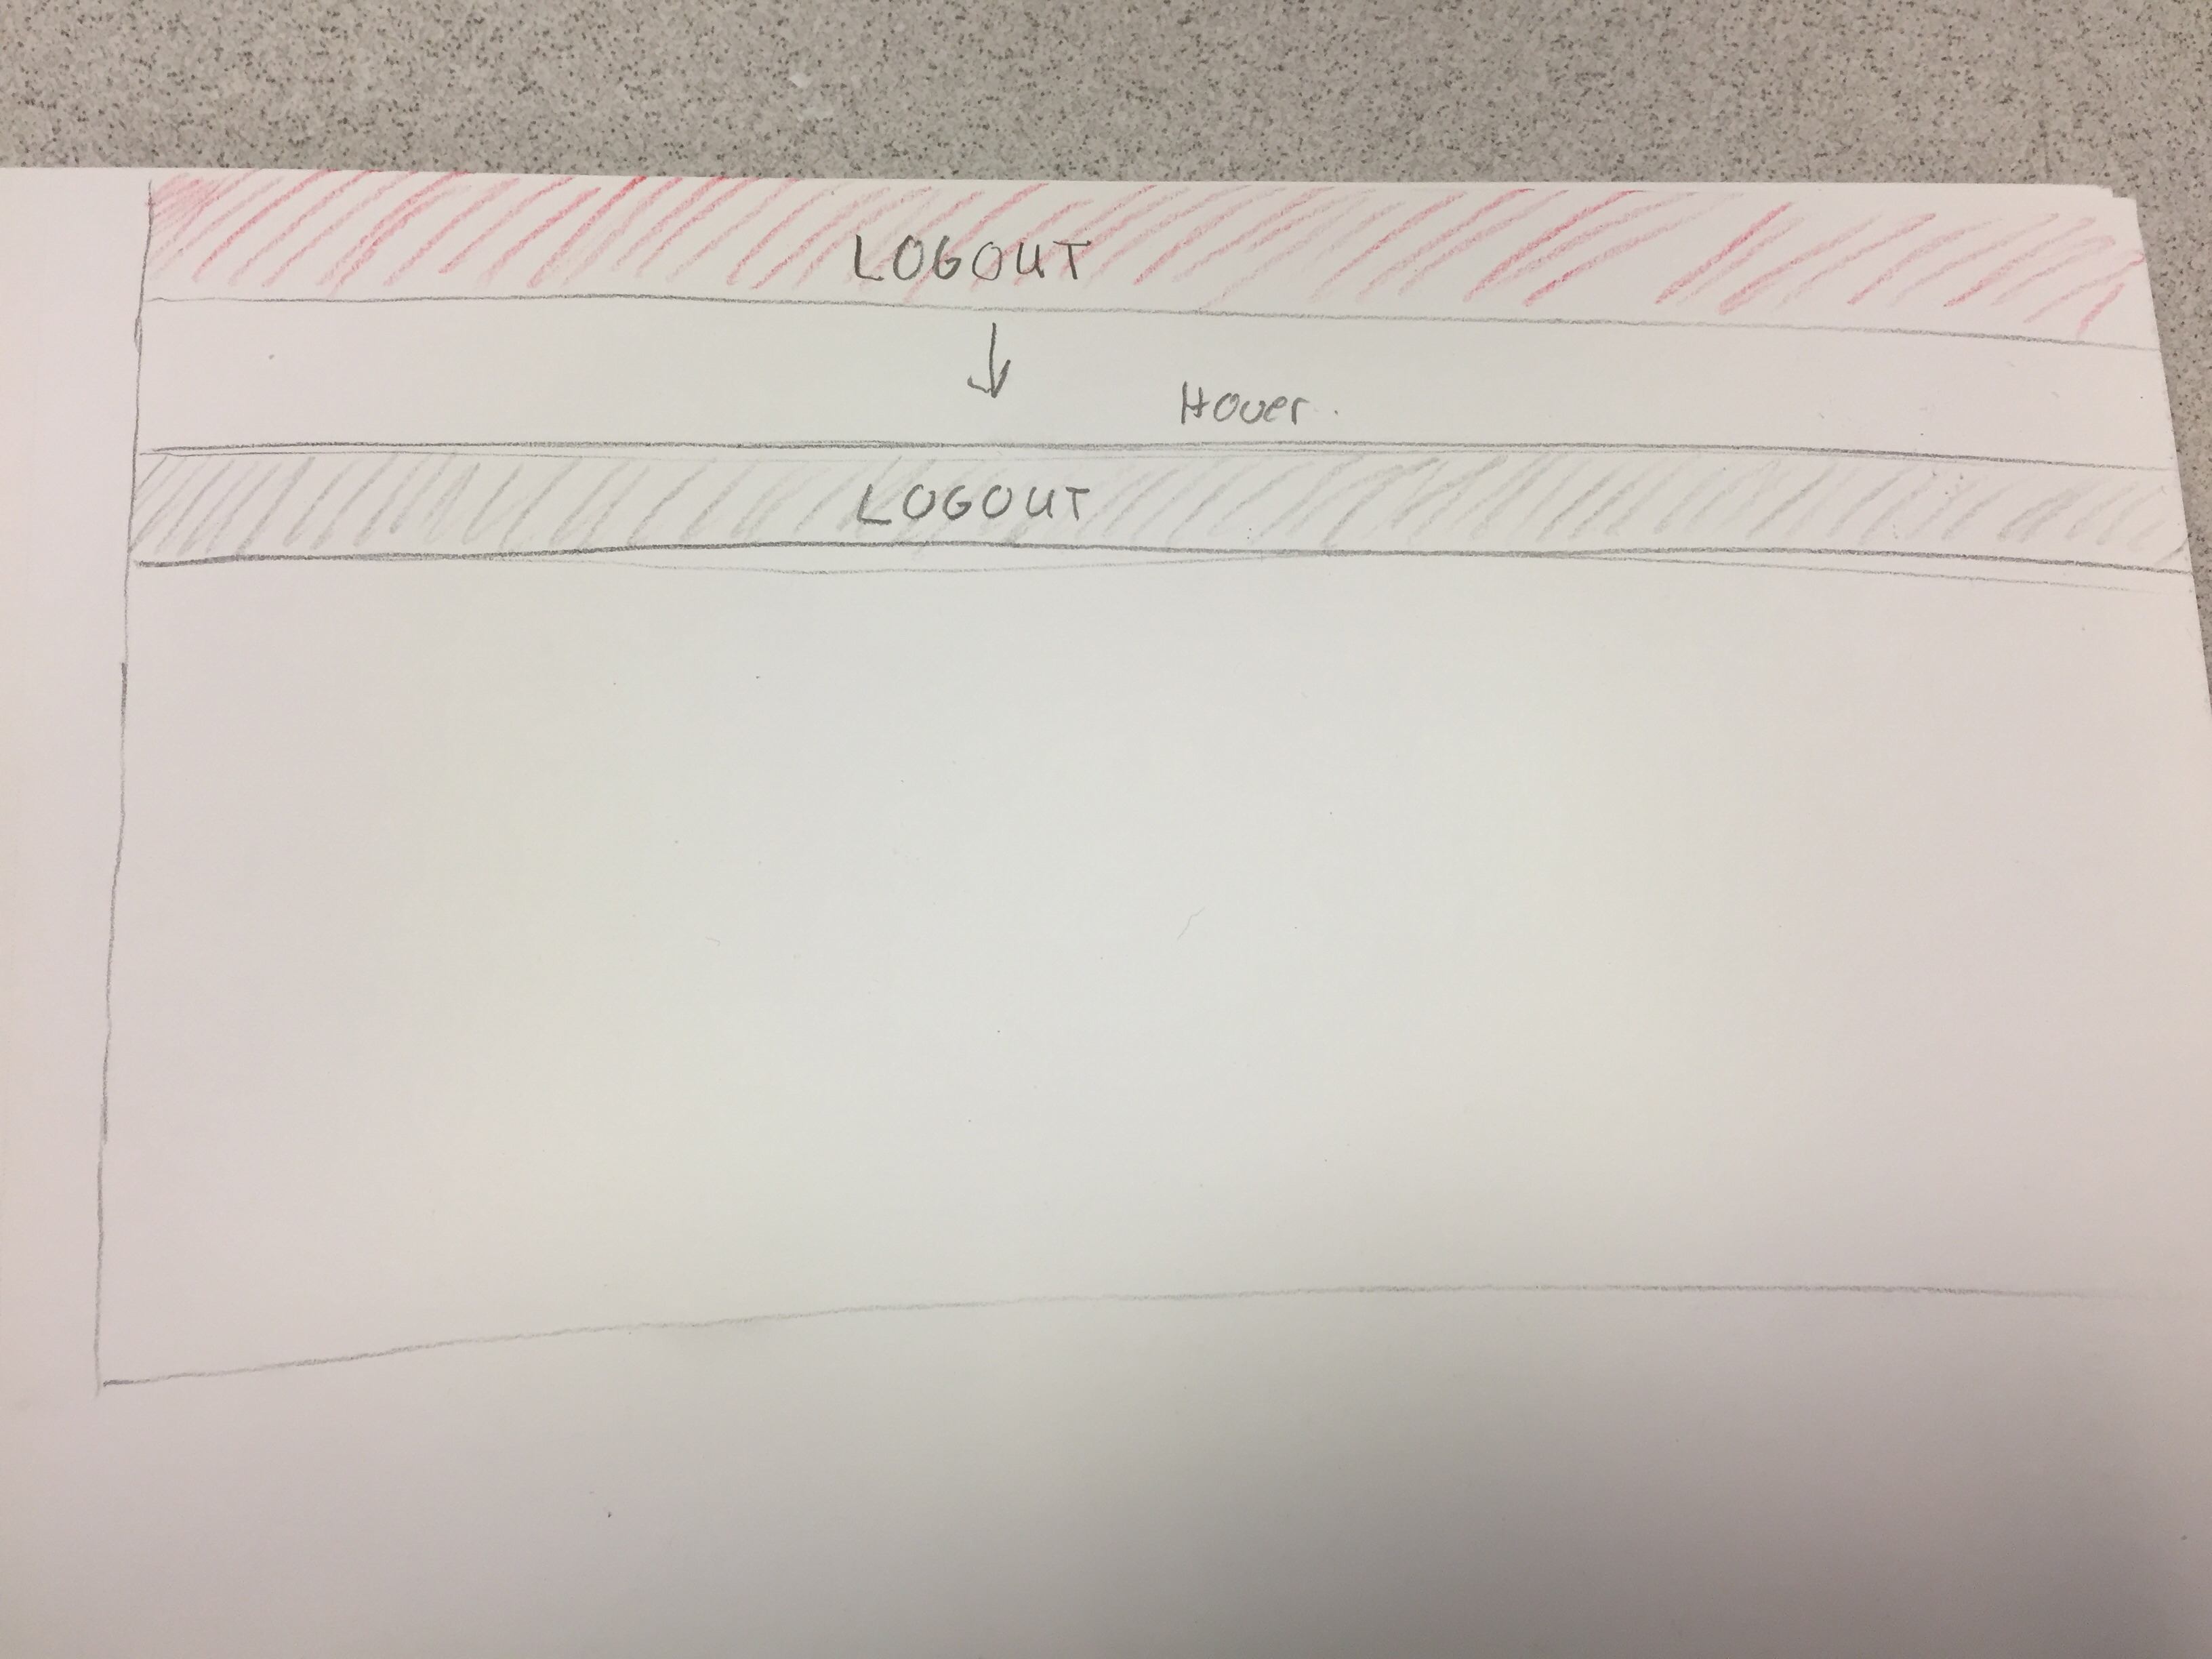 LOGOUT
Hover.
LOGOUT